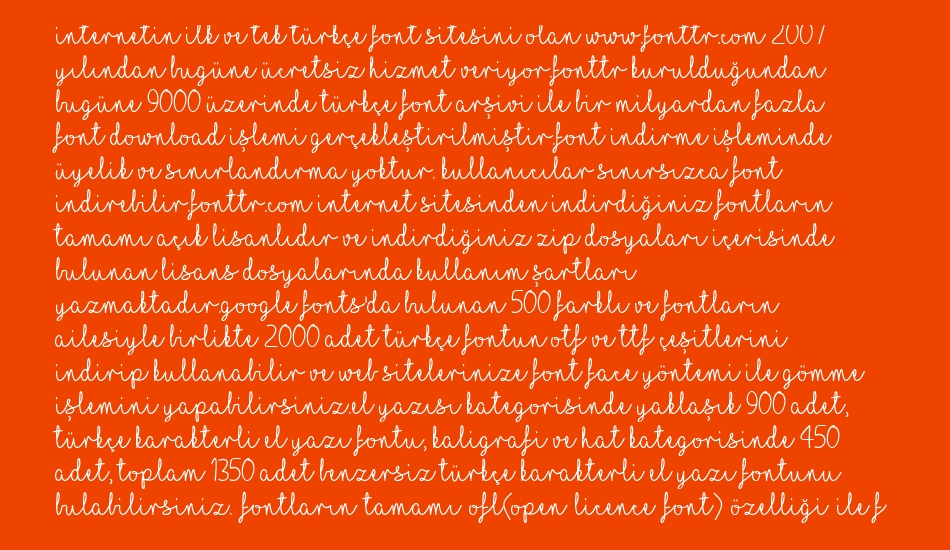 internetin ilk ve tek türkçe font sitesini olan www.fonttr.com 2007
yılından bugüne ücretsiz hizmet veriyor.fonttr kurulduğundan
bugüne 9000 üzerinde türkçe font arşivi ile bir milyardan fazla
font download işlemi gerçekleştirilmiştir.font indirme işleminde
üyelik ve sınırlandırma yoktur. kullanıcılar sınırsızca font
indirebilir.fonttr.com internet sitesinden indirdiğiniz fontların
tamamı açık lisanlıdır ve indirdiğiniz zip dosyaları içerisinde
bulunan lisans dosyalarında kullanım şartları
yazmaktadır.google fonts'da bulunan 500 farklı ve fontların
ailesiyle birlikte 2000 adet türkçe fontun otf ve ttf çeşitlerini
indirip kullanabilir ve web sitelerinize font face yöntemi ile gömme
işlemini yapabilirsiniz.el yazısı kategorisinde yaklaşık 900 adet,
türkçe karakterli el yazı fontu, kaligrafi ve hat kategorisinde 450
adet, toplam 1350 adet benzersiz türkçe karakterli el yazı fontunu
bulabilirsiniz. fontların tamamı ofl(open licence font) özelliği ile f